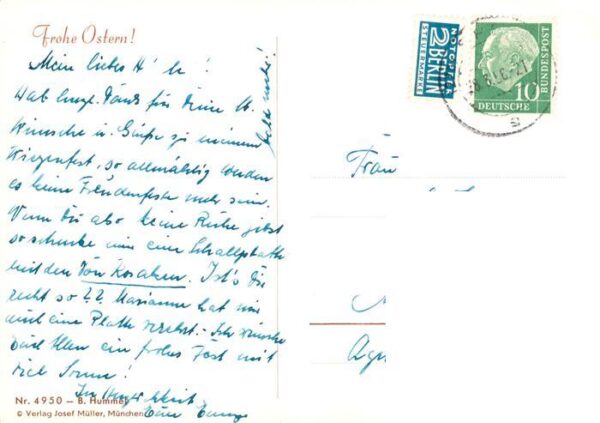 Frohe Ostern!
Mein liebes H
Hab herzl. Dank für Deine lb.
Wünsche u. Grüße zu meinem
Wiegenfest, so allmählig werden
es keine Freudenfeste mehr sein.
Wenn Du also keine Ruhe gibst
so schenke mir eine Schallplatte
mit den Don Kosaken. Ist's Dir
recht so?? Marianne hat mir
auch eine Platte
Euch Allen ein frohes Fest mit
viel Sonne!
In
Eure
Nr. 4950 – B. Hummel
© Verlag Josef Müller, München
NOTOPFER
2 BERLIN
STEUERMARKE
10
DEUTSCHE
BUNDESPOST
Frau